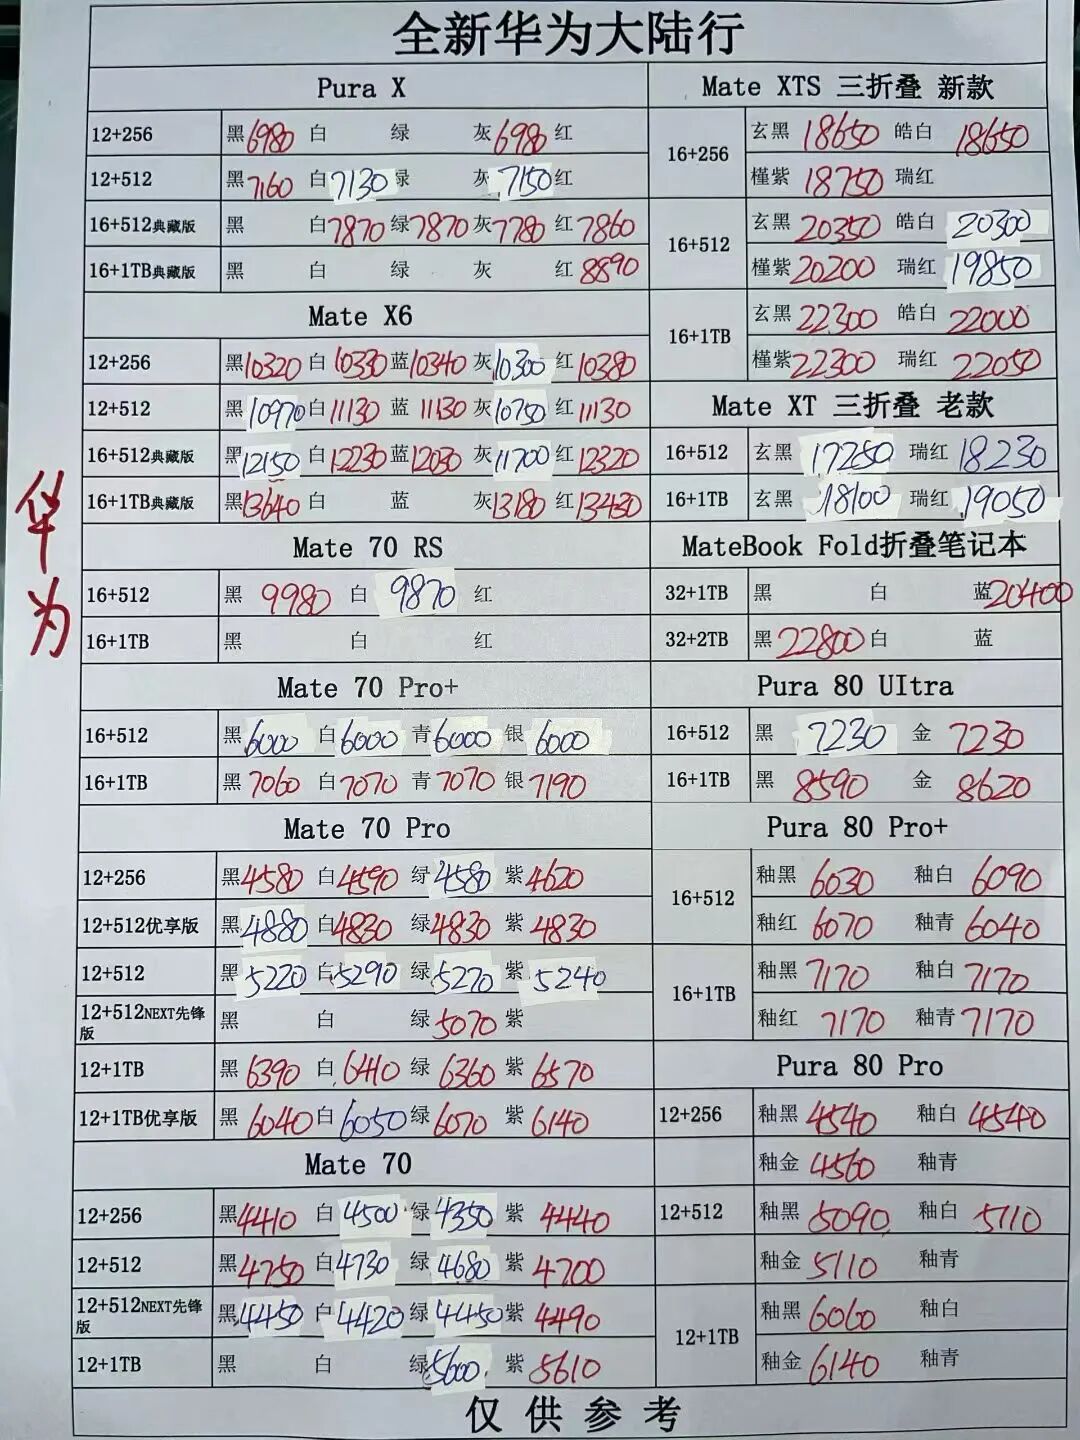 全新华为大陆行
华为
Pura X
12+256 黑6980 白 绿 灰6980 红
12+512 黑7160 白7130 绿 灰7150 红
16+512典藏版 黑 白7870 绿7870 灰7780 红7860
16+1TB典藏版 黑 白 绿 灰 红8890
Mate X6
12+256 黑10320 白10330 蓝10340 灰10300 红10380
12+512 黑10970 白11130 蓝11130 灰10750 红11130
16+512典藏版 黑12150 白12230 蓝12030 灰11700 红12320
16+1TB典藏版 黑13640 白 蓝 灰13180 红13430
Mate 70 RS
16+512 黑 9980 白 9870 红
16+1TB 黑 白 红
Mate 70 Pro+
16+512 黑6000 白6000 青6000 银6000
16+1TB 黑7060 白7070 青7070 银7190
Mate 70 Pro
12+256 黑4580 白4590 绿4580 紫4620
12+512优享版 黑4880 白4830 绿4830 紫4830
12+512 黑5220 白5290 绿5270 紫5240
12+512NEXT先锋版 黑 白 绿5070 紫
12+1TB 黑6390 白6410 绿6360 紫6570
12+1TB优享版 黑6040 白6050 绿6070 紫6140
Mate 70
12+256 黑4410 白4500 绿4350 紫4440
12+512 黑4750 白4730 绿4680 紫4700
12+512NEXT先锋版 黑4450 白4420 绿4450 紫4490
12+1TB 黑 白 绿5600 紫5610
Mate XTS 三折叠 新款
16+256 玄黑 18650 皓白 18650
槿紫 18750 瑞红
16+512 玄黑 20350 皓白 20300
槿紫20200 瑞红 19850
16+1TB 玄黑 22300 皓白 22000
槿紫22300 瑞红 22050
Mate XT 三折叠 老款
16+512 玄黑 17250 瑞红 18230
16+1TB 玄黑 18100 瑞红 19050
MateBook Fold折叠笔记本
32+1TB 黑 白 蓝20400
32+2TB 黑22800 白 蓝
Pura 80 UItra
16+512 黑 7230 金 7230
16+1TB 黑 8590 金 8620
Pura 80 Pro+
16+512 釉黑 6030 釉白 6090
釉红 6070 釉青 6040
16+1TB 釉黑 7170 釉白 7170
釉红 7170 釉青 7170
Pura 80 Pro
12+256 釉黑 4540 釉白 4540
釉金 4560 釉青
12+512 釉黑 5090 釉白 5110
釉金 5110 釉青
12+1TB 釉黑 6060 釉白
釉金 6140 釉青
仅供参考